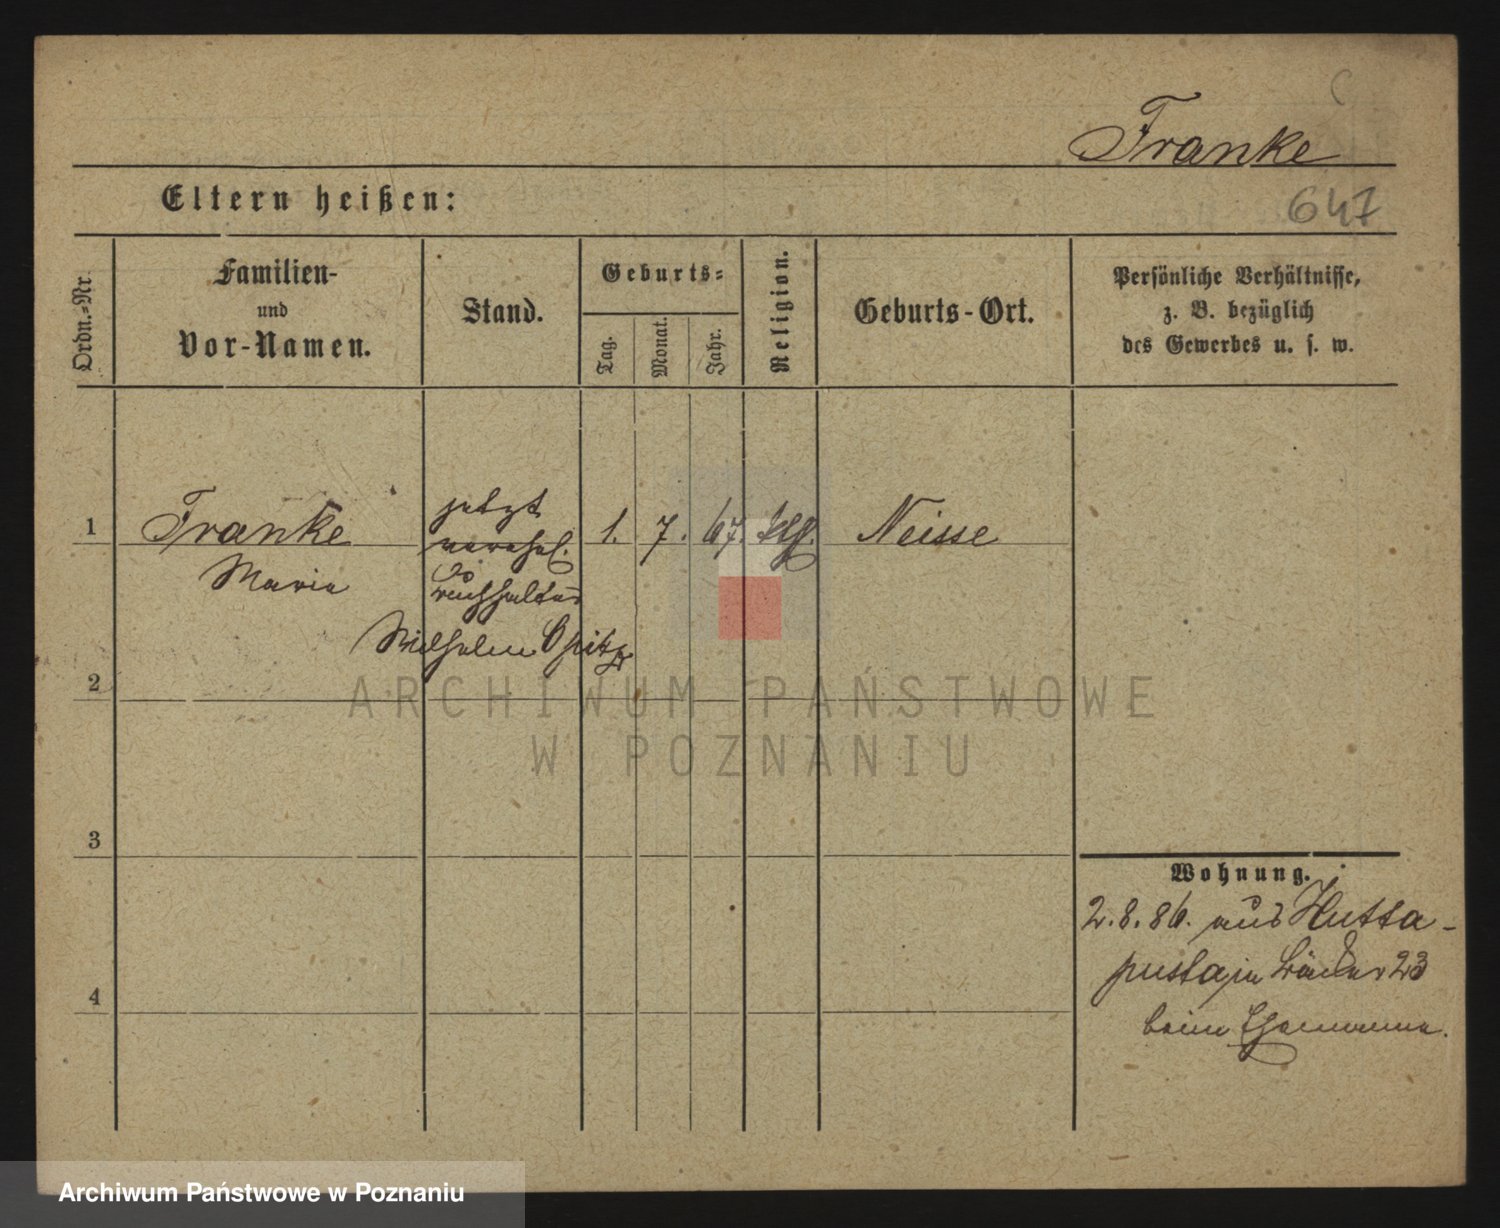 Franke
Eltern heißen:
647
Ordn.-Nr.
Familien-
und
Vor-Namen.
Stand.
Geburts-
Tag.
Monat.
Jahr.
Religion.
Geburts-Ort.
Persönliche Verhältnisse,
z. B. bezüglich
des Gewerbes u. s. w.
1
Franke
Marie
jetzt
verehel.
Buchhalter
Wilhelm Opitz
1. 7. 67.
Neisse
2
ARCHIWUM PAŃSTWOWE
W POZNANIU
3
4
Wohnung.
2.8.86. aus Hutta-
pusta, in 23
beim Ehemanne.
Archiwum Państwowe w Poznaniu